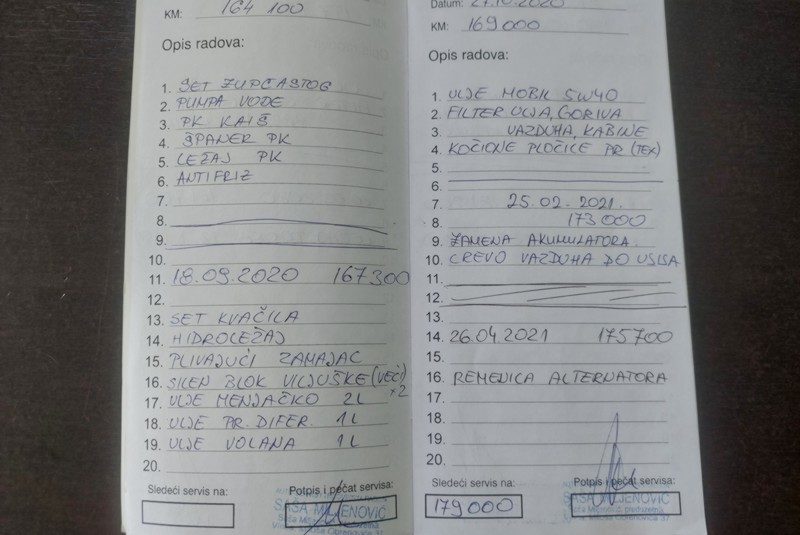 KM: 164 100
Opis radova:
1. SET ZUPČASTOG
2. PUMPA VODE
3. PK KAIŠ
4. ŠPANER PK
5. LEŽAJ PK
6. ANTIFRIZ
7.
8.
9.
10.
11. 18.09.2020 167300
12.
13. SET KVAČILA
14. HIDROLEŽAJ
15. PLIVAJUĆI ZAMAJAC
16. SILEN BLOK VILJUŠKE (VEĆI) x2
17. ULJE MENJAČKO 2L
18. ULJE PR. DIFER. 1L
19. ULJE VOLANA 1L
20.
Sledeći servis na:
Potpis i pečat servisa:
SAŠA MILJENOVIĆ
Datum: 27.10.2020
KM: 169000
Opis radova:
1. ULJE MOBIL 5W40
2. FILTER ULJA, GORIVA
3. VAZDUHA, KABINE
4. KOČIONE PLOČICE PR (TEX)
5.
6.
7. 25.02.2021.
8. 173000
9. ZAMENA AKUMULATORA
10. CREVO VAZDUHA DO USISA
11.
12.
13.
14. 26.04.2021 175700
15.
16. REMENICA ALTERNATORA
17.
18.
19.
20.
Sledeći servis na:
179000
Potpis i pečat servisa:
SAŠA MILJENOVIĆ